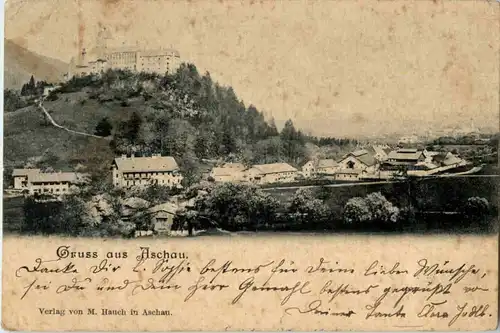 Gruss aus Aschau.
Danke Dir l. Sophie bestens für Deine lieben Wünsche,
sei Du und Dein Herr Gemahl bestens gegrüßt von
Deiner Tante
Verlag von M. Hauch in Aschau.